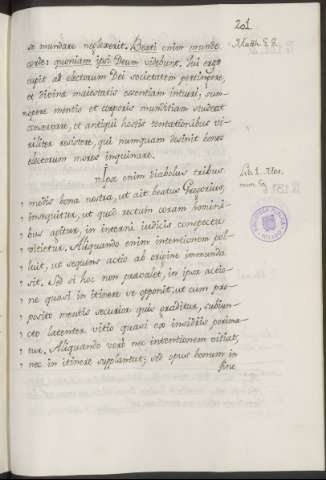 201
se mundare neglexerit. Beati enim mundo
corde: quoniam ipsi Deum videbunt. Qui ergo
Matth. 5. 8.
cupit ad electorum Dei societatem pertingere,
et divinæ maiestatis essentiam intueri, sum-
mopere mentis et corporis munditiam studeat
conservare, et antiqui hostis tentationibus vi-
riliter resistere, qui numquam desinit bonos
electorum mores inquinare.
Ipse enim diabolus tribus
Lib. 1. Mor.
modis bona nostra, ut ait beatus Gregorius,
insequitur, ut quod rectum coram homini-
bus agitur, in interni iudicis conspectu
vitietur. Aliquando enim intentionem pol-
luit, ut sequens actio ab origine immunda
sit. Sed si hoc non prævalet, in ipsa actio-
ne quasi in itinere se opponit, ut cum pro-
posito mentis securior quis graditur, subiun-
cto latenter vitio quasi ex insidiis perima-
tur. Aliquando verò nec intentionem vitiat,
nec in itinere supplantat; sed opus bonum in
fine